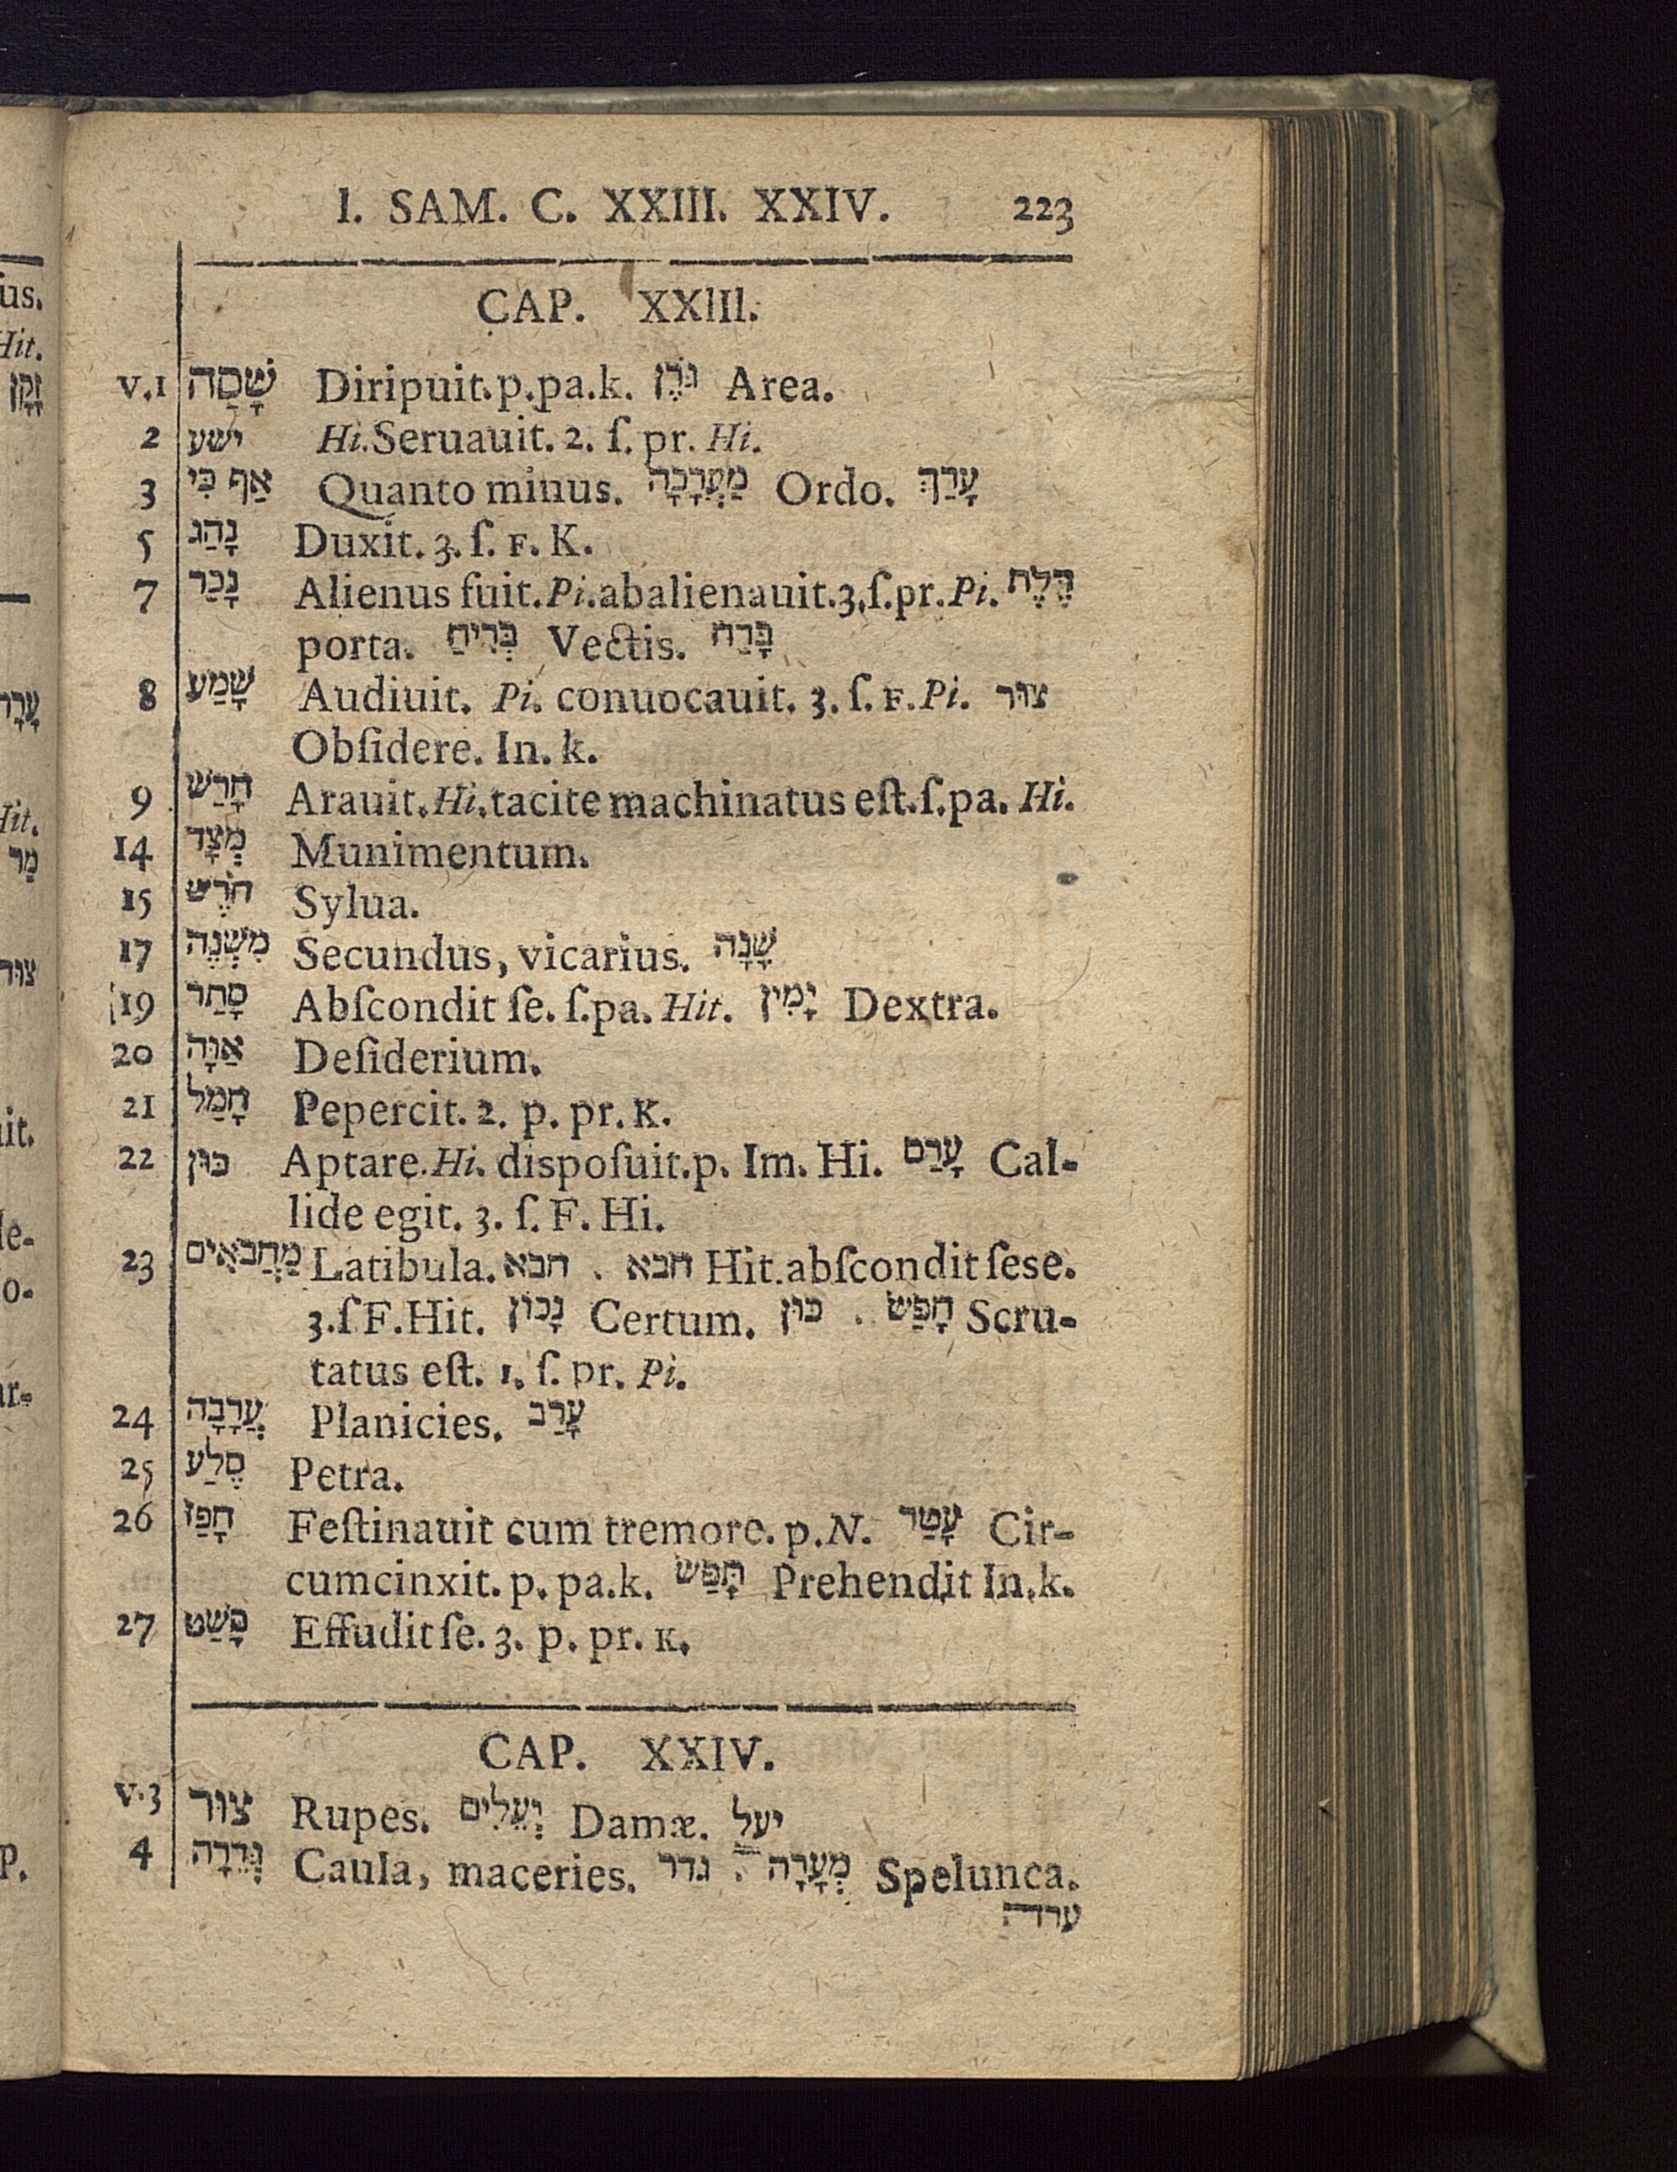 I. SAM. C. XXIII. XXIV. 223
CAP. XXIII.
V.1 שָׁסַה Diripuit.p.pa.k. גֹּרֶן Area.
2 ישע Hi.Seruauit. 2. ſ. pr. Hi.
3 אַף כִּי Quanto minus. מַעֲרָכָה Ordo. עָרַךְ
5 נָהַג Duxit. 3. ſ. F. K.
7 נָכַר Alienus fuit.Pi.abalienauit.3.ſ.pr.Pi. דֶּלֶת
porta. בְּרִיחַ Vectis. בָּרַח
8 שָׁמַע Audiuit. Pi. conuocauit. 3. ſ. F.Pi. צוּר
Obſidere. In. k.
9 חָרַשׁ Arauit.Hi.tacite machinatus eſt.ſ.pa. Hi.
14 מְצָד Munimentum.
15 חֹרֶשׁ Sylua.
17 מִשְׁנֶה Secundus, vicarius. שָׁנָה
19 סָתַר Abſcondit ſe. ſ.pa. Hit. יָמִין Dextra.
20 אַוָּה Deſiderium.
21 חָמַל Pepercit. 2. p. pr. K.
22 כּוּן Aptare.Hi. diſpoſuit.p. Im. Hi. עָרַם Cal-
lide egit. 3. ſ. F. Hi.
23 מַחֲבֹאִים Latibula. חבא . חבא Hit.abſcondit ſese.
3.ſ F.Hit. נָכוֹן Certum. כּוּן . חָפַשׂ Scru-
tatus eſt. 1. ſ. pr. Pi.
24 עֲרָבָה Planicies. עָרַב
25 סֶלַע Petra.
26 חָפַז Feſtinauit cum tremore. p.N. עָטַר Cir-
cumcinxit. p. pa.k. תָּפַשׂ Prehendit In.k.
27 פָּשַׁט Effudit ſe. 3. p. pr. K.
CAP. XXIV.
V.3 צוּר Rupes. יְעֵלִים Damæ. יעל
4 גְּדֵרָה Caula, maceries. גדר . מְעָרָה Spelunca.